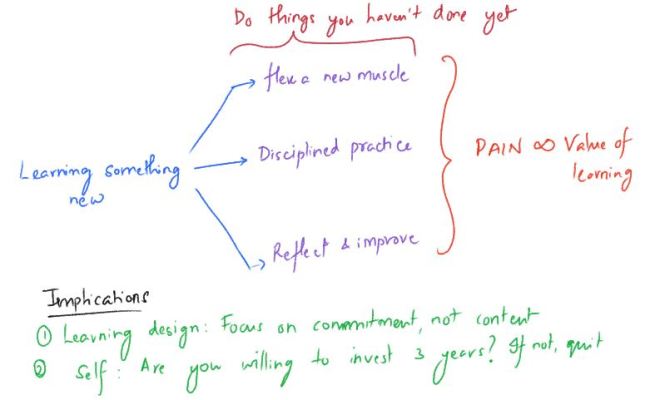 Do things you haven't done yet
flex a new muscle
Disciplined practice
PAIN ∝ Value of
learning
Learning something
new
Reflect & improve
Implications
① Learning design: Focus on commitment, not content
② Self: Are you willing to invest 3 years? If not, quit